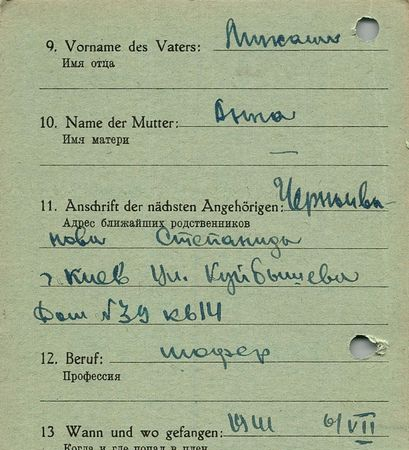 9. Vorname des Vaters: Михаил
Имя отца
10. Name der Mutter: Анна
Имя матери
—
11. Anschrift der nächsten Angehörigen:
Адрес ближайших родственников
Степанида
г Киев Ул. Куйбышева
Дом №39 кв14
12. Beruf: шофер
Профессия
13 Wann und wo gefangen: 1941 6/VII
Когда и где попал в плен